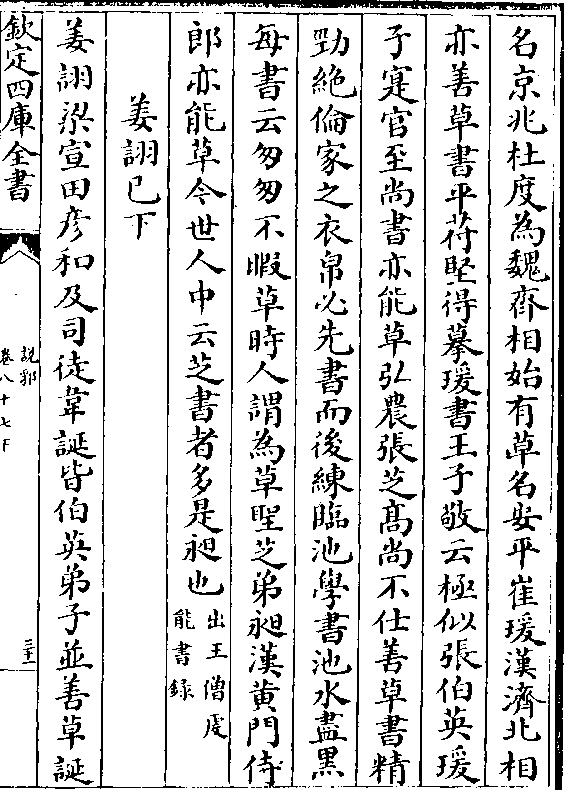 名京兆杜度為魏齊相始有草名安平崔瑗漢濟北相
亦善草書平苻堅得摹瑗書王子敬云極似張伯英瑗
子寔官至尚書亦能草弘農張芝髙尚不仕善草書精
勁絶倫家之衣帛必先書而後練臨池學書池水盡黑
每書云匆匆不暇草時人謂為草聖芝弟昶漢黄門侍
郎亦能草今世人中云芝書者多是昶也出王僧䖍能書錄
姜詡已下
姜詡梁宣田彦和及司徒韋誕皆伯英弟子並善草誕
欽定四庫全書
説郛
卷八十七下
三十二